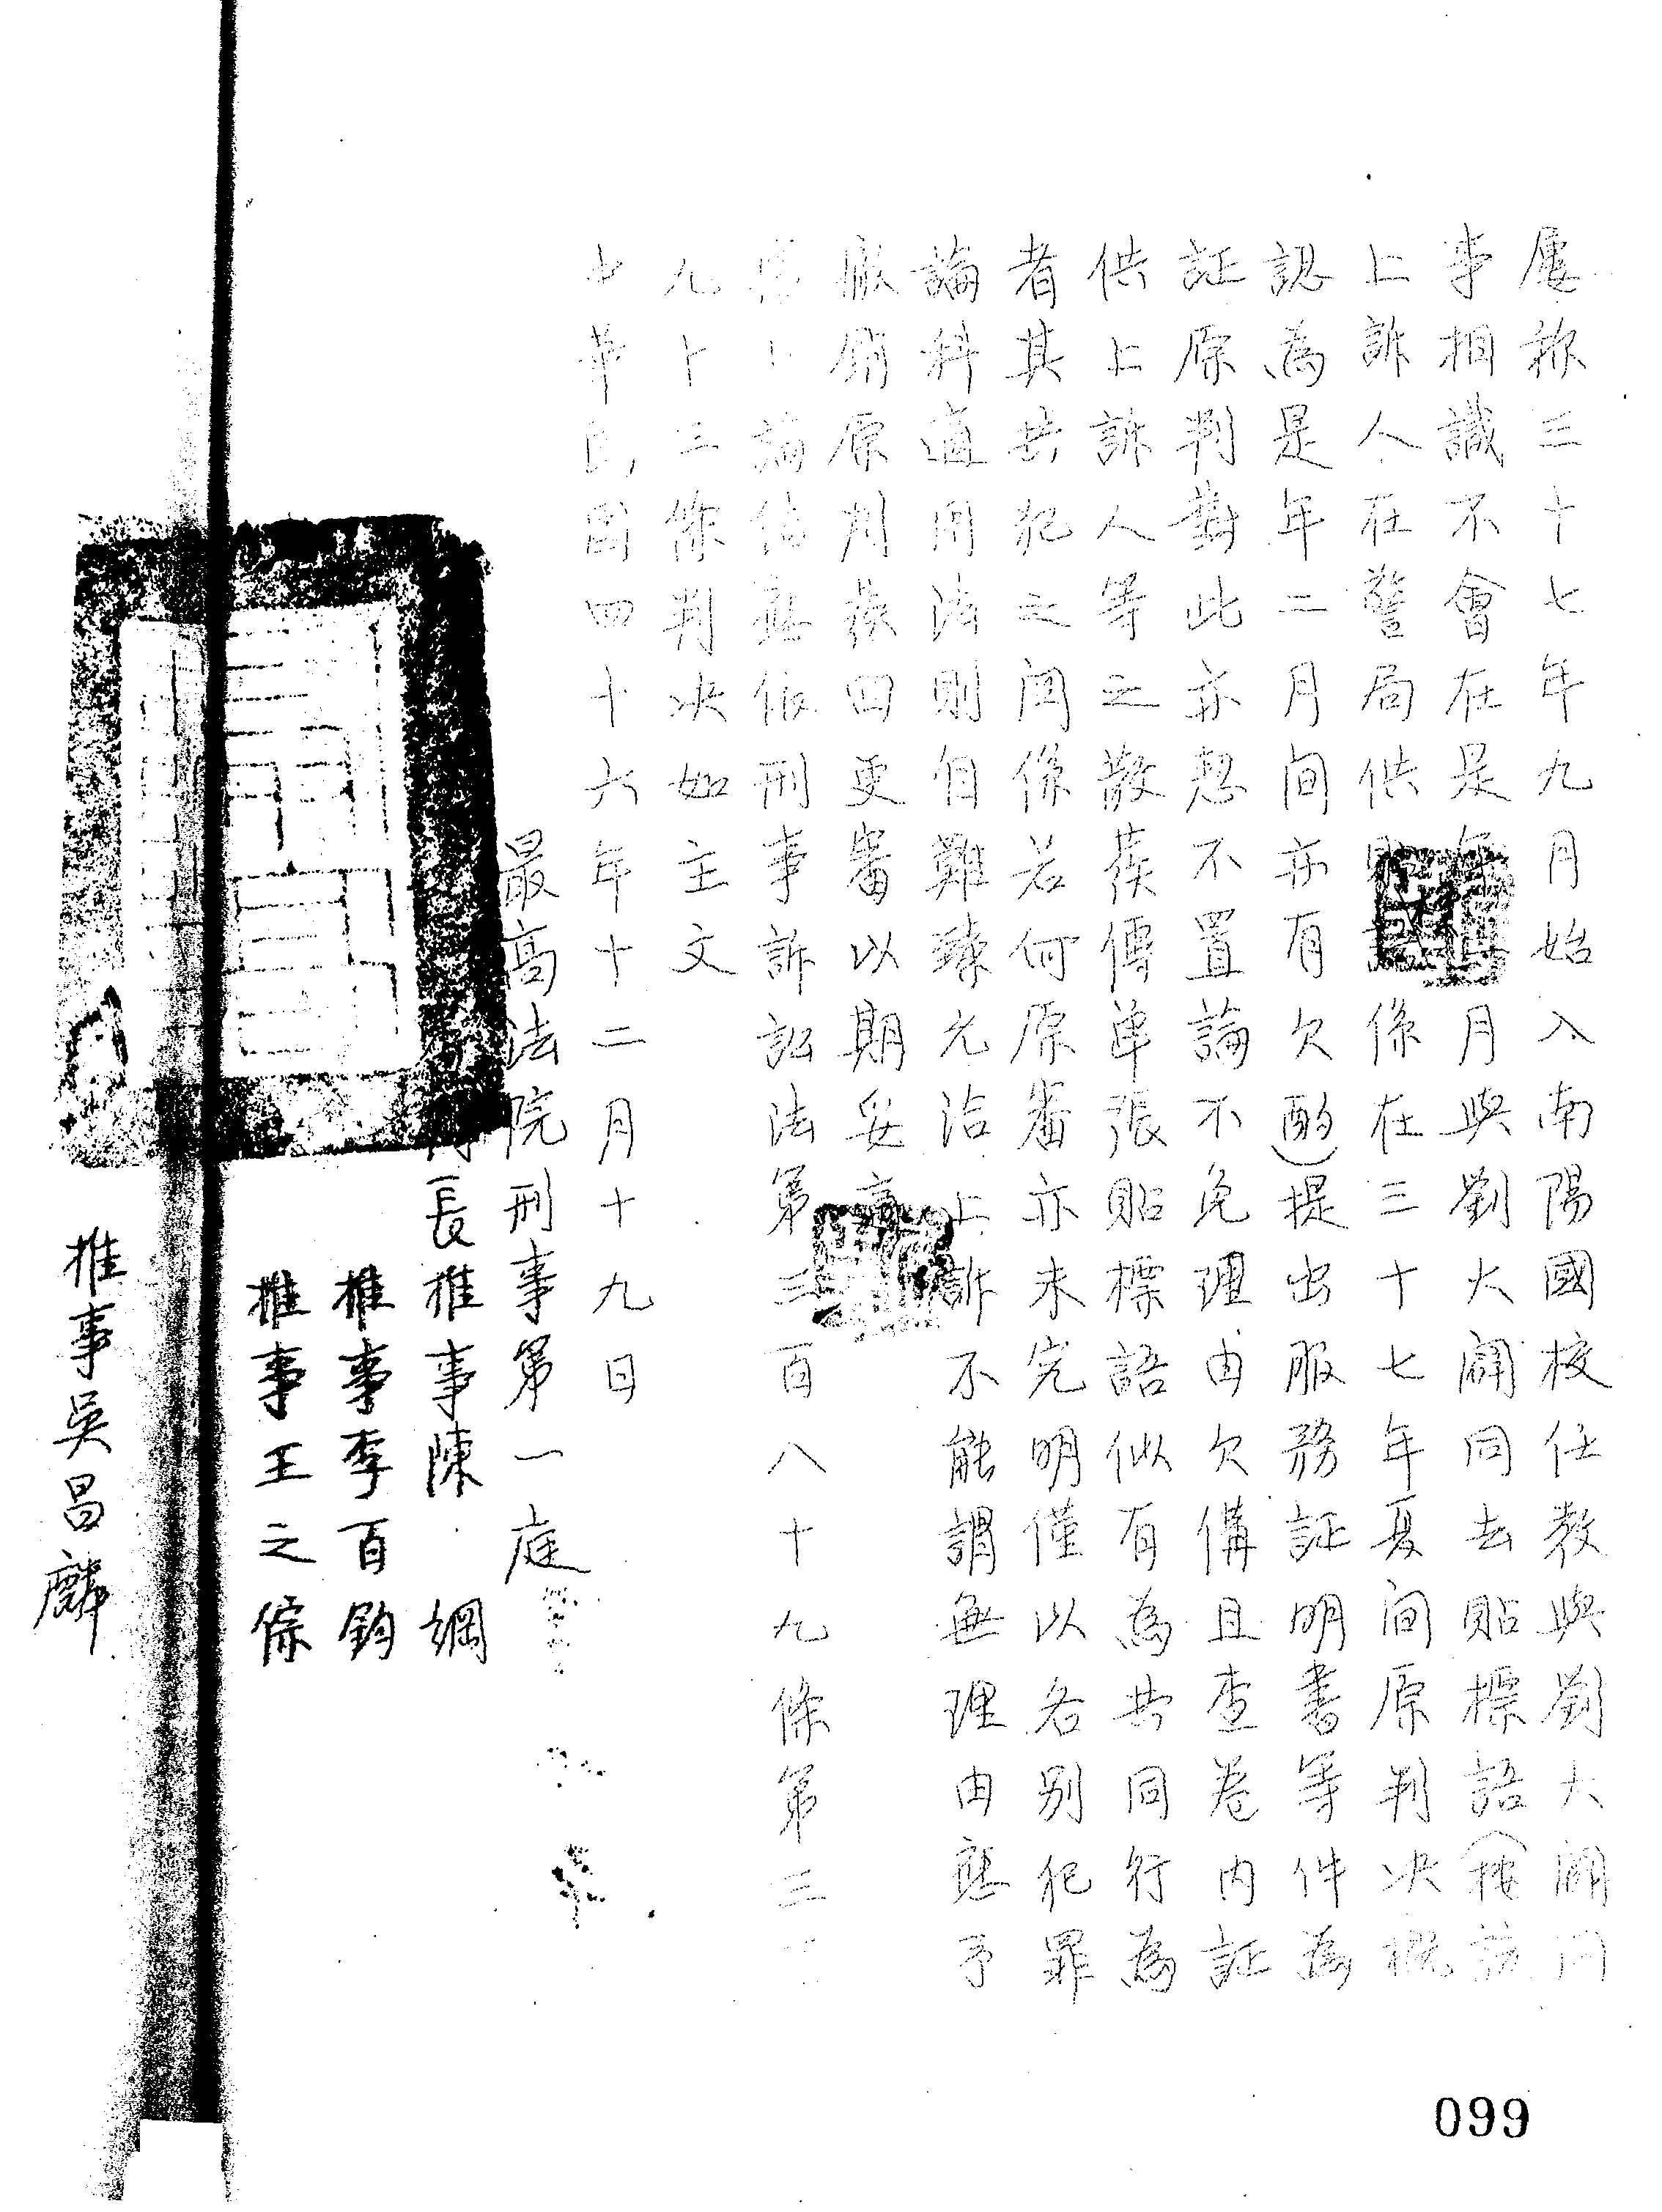 屢称三十七年九月始入南陽國校任教與劉大闢同
事相識不會在是年　月與劉大闢同去貼標語(按該
上訴人在警局供　係在三十七年夏间原判决概
認為是年二月间亦有欠酌)提出服務証明書等件為
証原判對此亦恝不置論不免理由欠偹且查卷内証
供上訴人等之散發傳单張貼標語似有為共同行為
者其共犯之関係若何原審亦未究明僅以各別犯罪
論科適用法則自難臻允洽上訴不能謂無理由應予
撤銷原判發回更審以期妥
據上論結應依刑事訴訟法第三百八十九條第三
九十三條判决如主文
中華民國四十六年十二月十九日
最高法院刑事第一庭
長推事陳綱
推事李百鈞
推事王之倧
推事吳昌麟
099